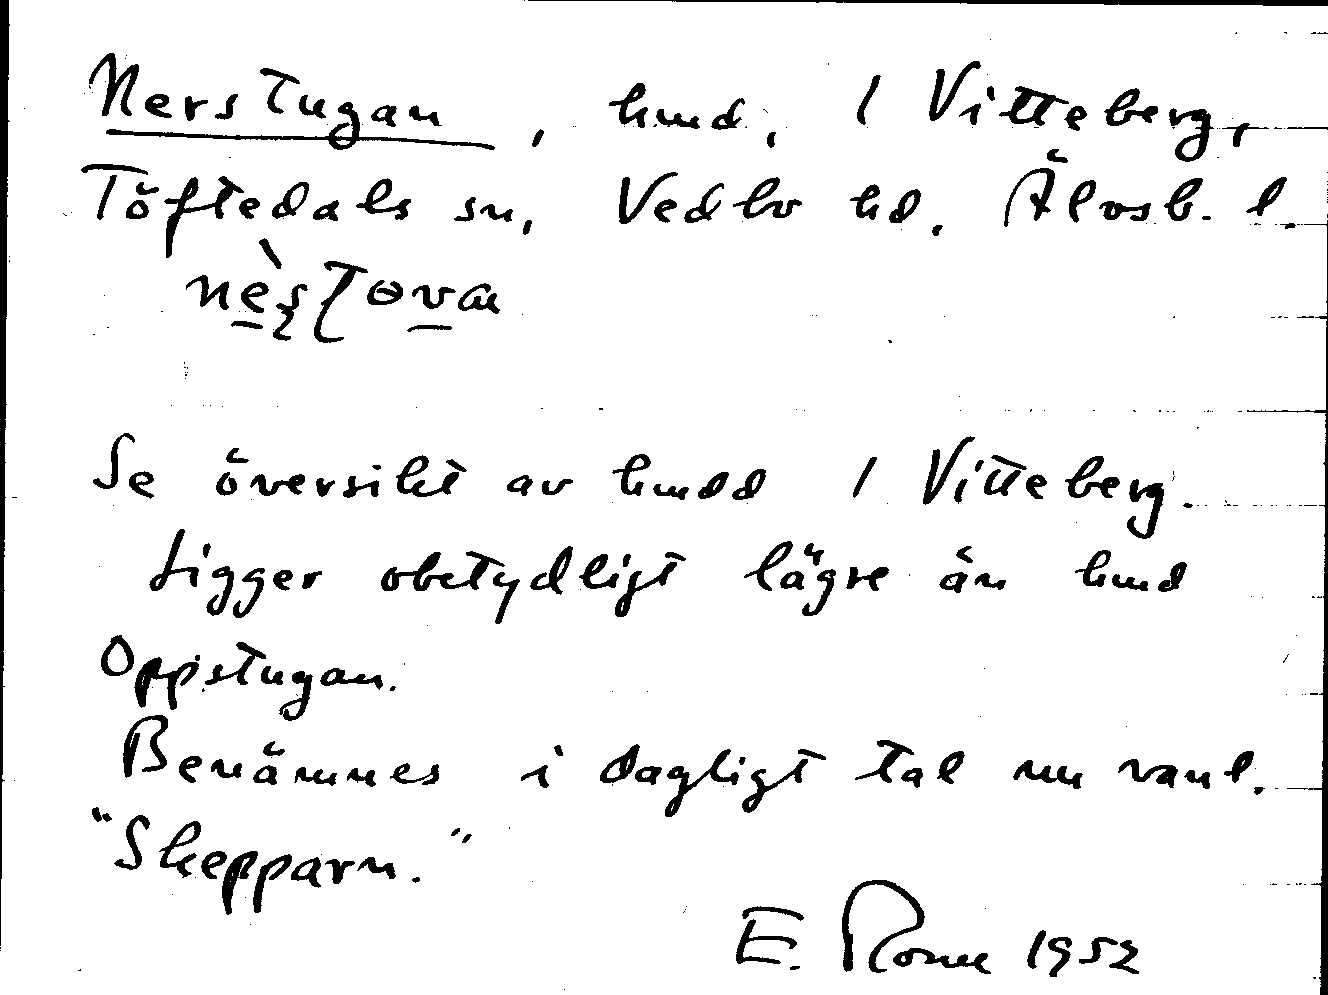 Nerstugan, hmd, 1 Vitteberg,
Töftedals sn, Vedbo hd. Älvsb. l.
Se översikt av hmdd 1 Vitteberg.
Ligger obetydligt lägre än hmd
Oppistugan.
Benämnes i dagligt tal nu vanl.
"Skepparn."
E. Rome 1952